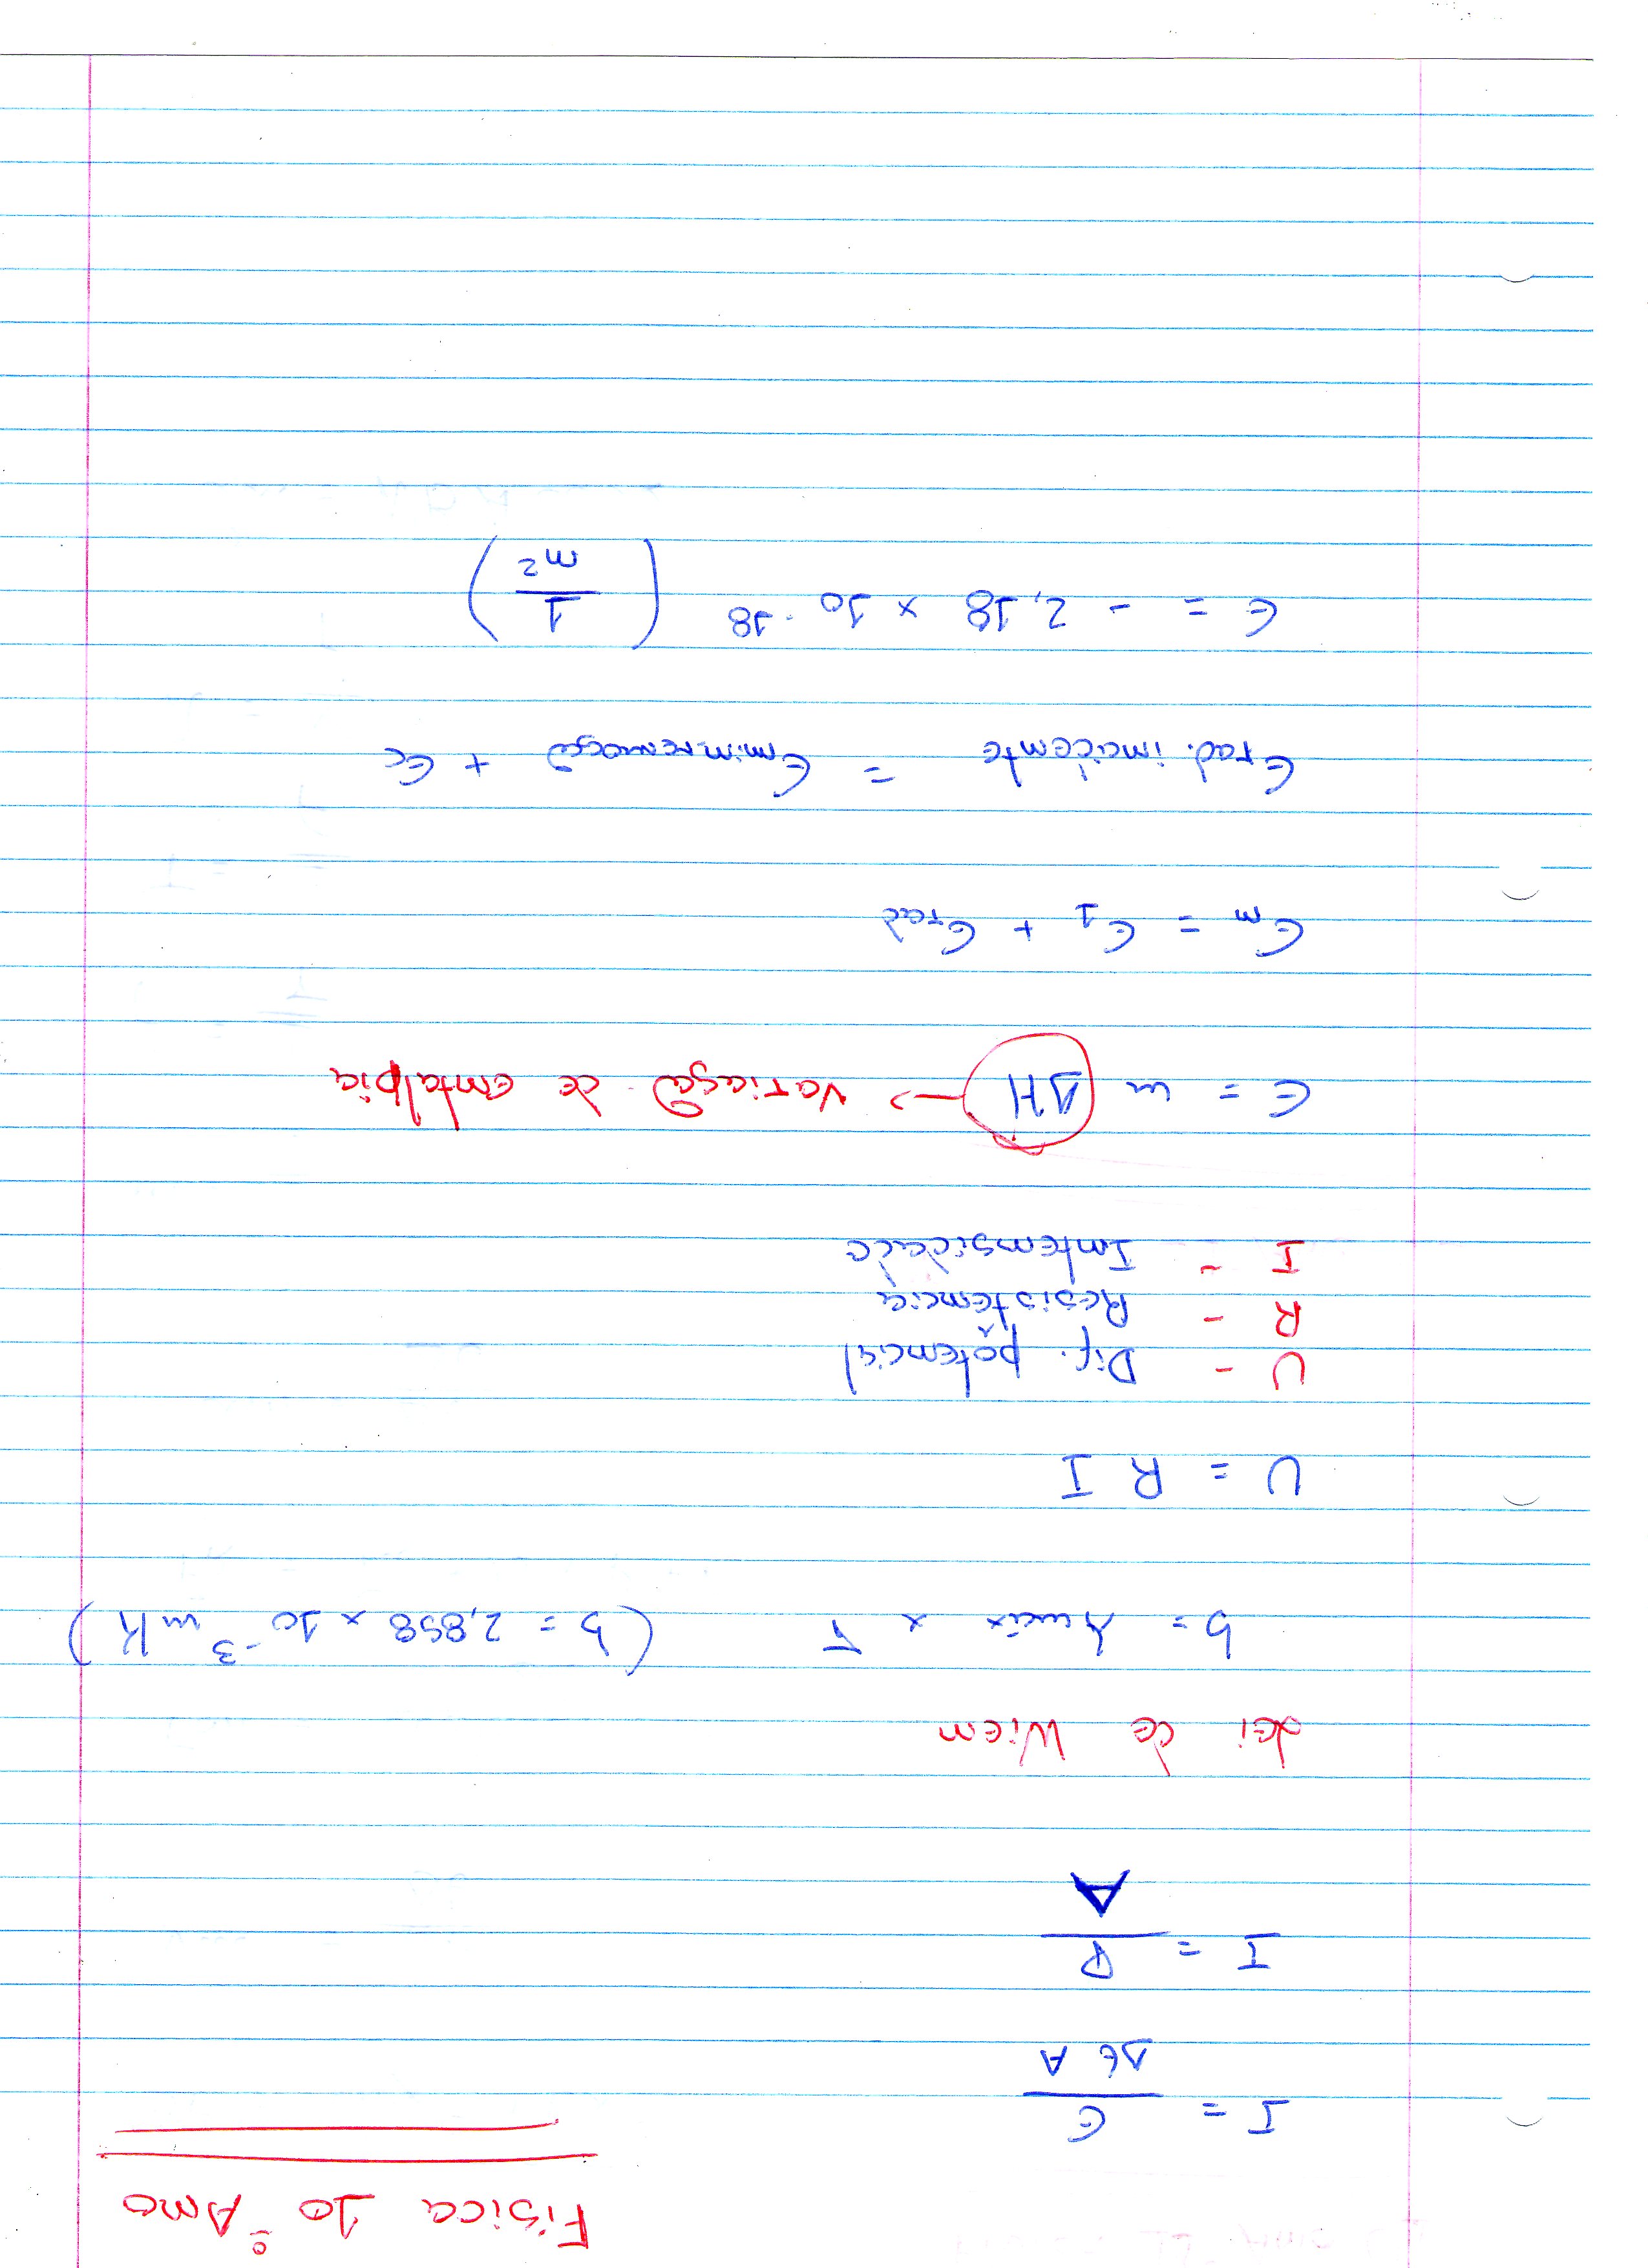 Física 10º Ano
I = E / Δt A
I = P / A
Lei de Wien
b = λmáx × T (b = 2,898 × 10⁻³ mK)
U = R I
U - Dif. potêncial
R - Resistência
I - Intensidade
E = m ΔH → variação de entalpia
En = E1 + Erad
Erad. incidente = Emin.remoção + Ec
E = - 2,18 × 10⁻¹⁸ (1 / n²)